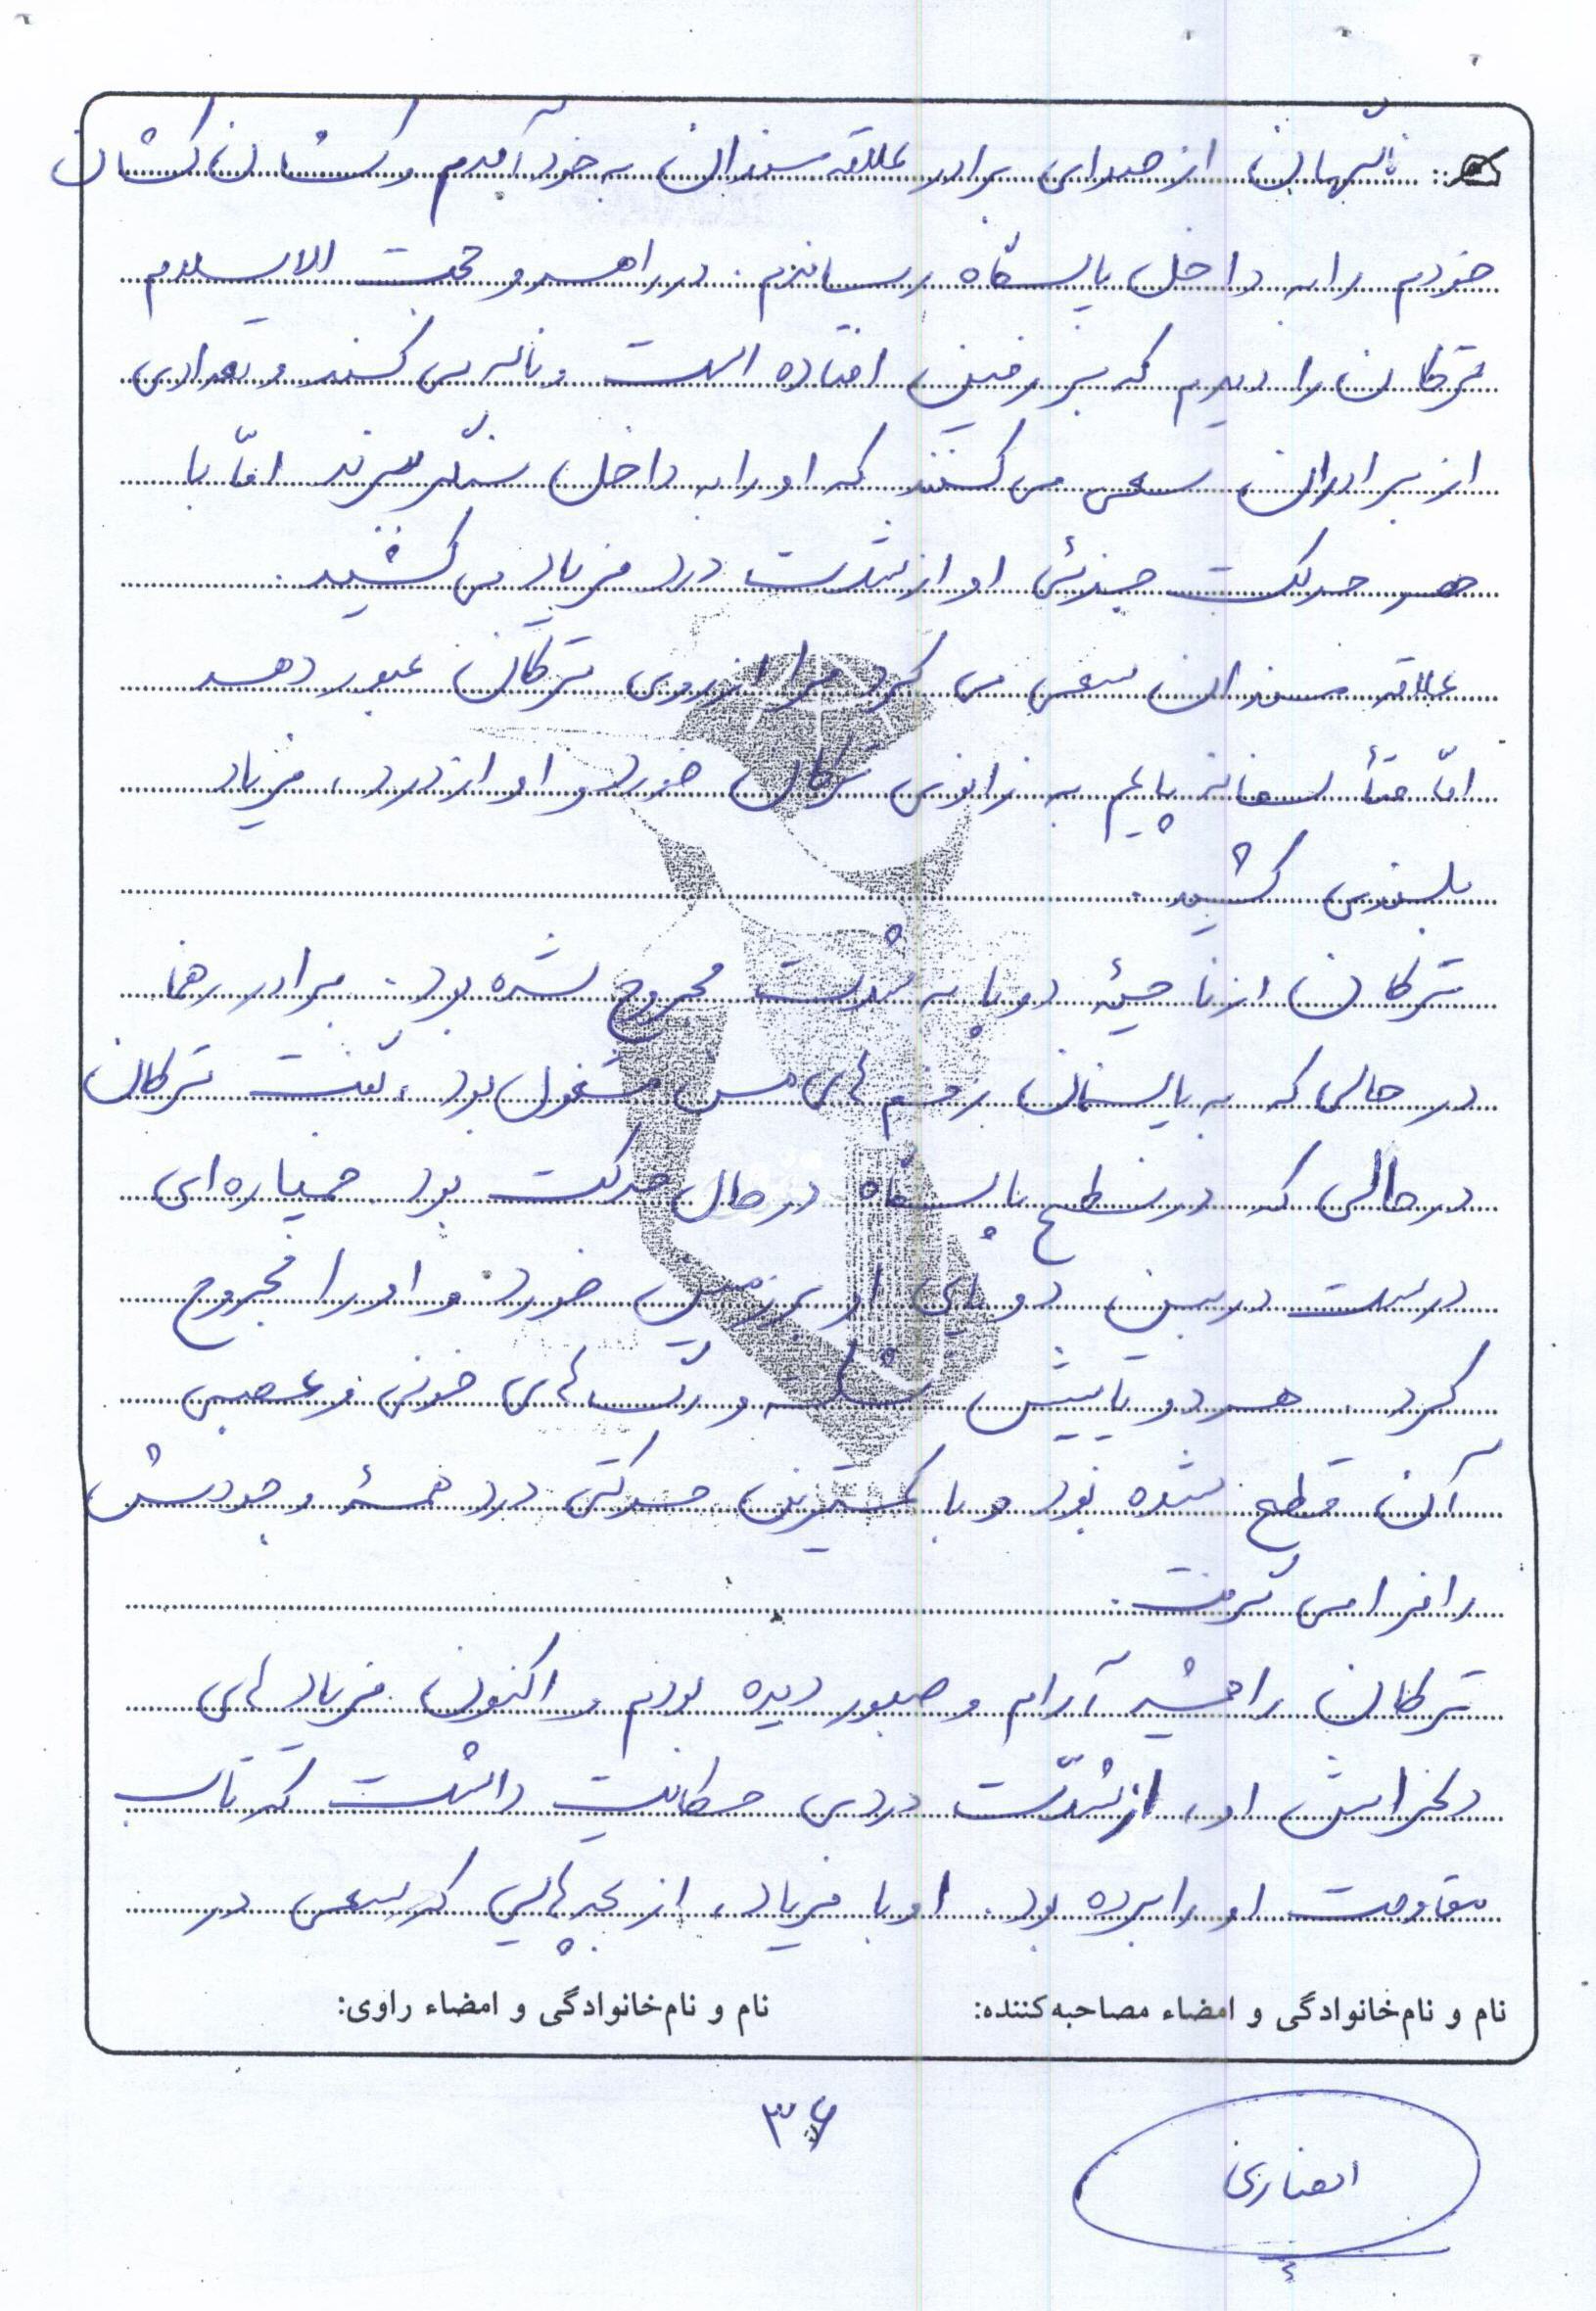 ناگهان از صدای برادر علاقه‌مندان به خود آمدم و کشان کشان
خودم را به داخل پاسگاه رساندم. در راهرو حجت الاسلام
ترکان را دیدم که بر زمین افتاده است و ناله می کند و تعدادی
از برادران سعی می کنند که او را به داخل سنگر ببرند امّا با
هر حرکت جزئی او از شدت درد فریاد می کشید.
علاقه مندان سعی می کرد مرا از روی ترکان عبور دهد
امّا متأسفانه پایم به زانوی ترکان خورد و او از درد، فریاد
بلندی کشید.
ترکان از ناحیهٔ دو پا به شدت مجروح شده بود. برادر رهنما
در حالی که به پانسمان زخم های من مشغول بود، گفت ترکان
در حالی که در سطح پاسگاه در حال حرکت بود خمپاره ای
درست در بین دو پای او بر زمین خورد و او را مجروح
کرد. هر دو پایش شکسته و رگ های خونی و عصبی
آن قطع شده بود و با کمترین حرکتی درد همهٔ وجودش
را فرا می گرفت.
ترکان را همیشه آرام و صبور دیده بودم و اکنون فریاد های
دلخراش او، از شدّت دردی حکایت داشت که تاب
مقاومت او را برده بود. او با فریاد، از بچه هایی که سعی در
نام و نام‌خانوادگی و امضاء مصاحبه‌کننده: نام و نام‌خانوادگی و امضاء راوی:
۳۶
انصاری